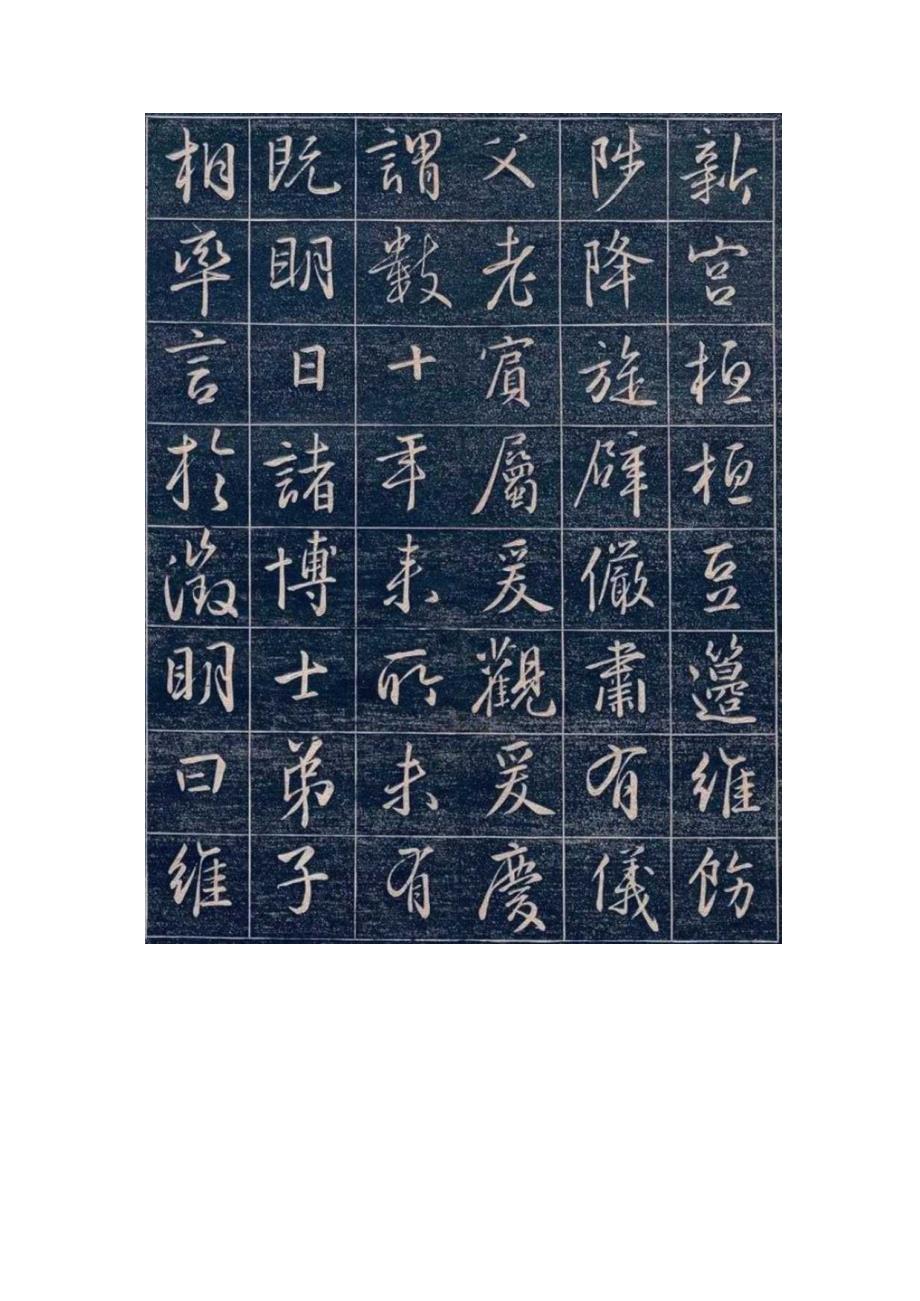 新宫桓桓豆籩維飭
陟降旋辟儼肅有儀
父老賓屬爰觀爰慶
謂數十年来所未有
既明日諸博士弟子
相率言於澂明曰維